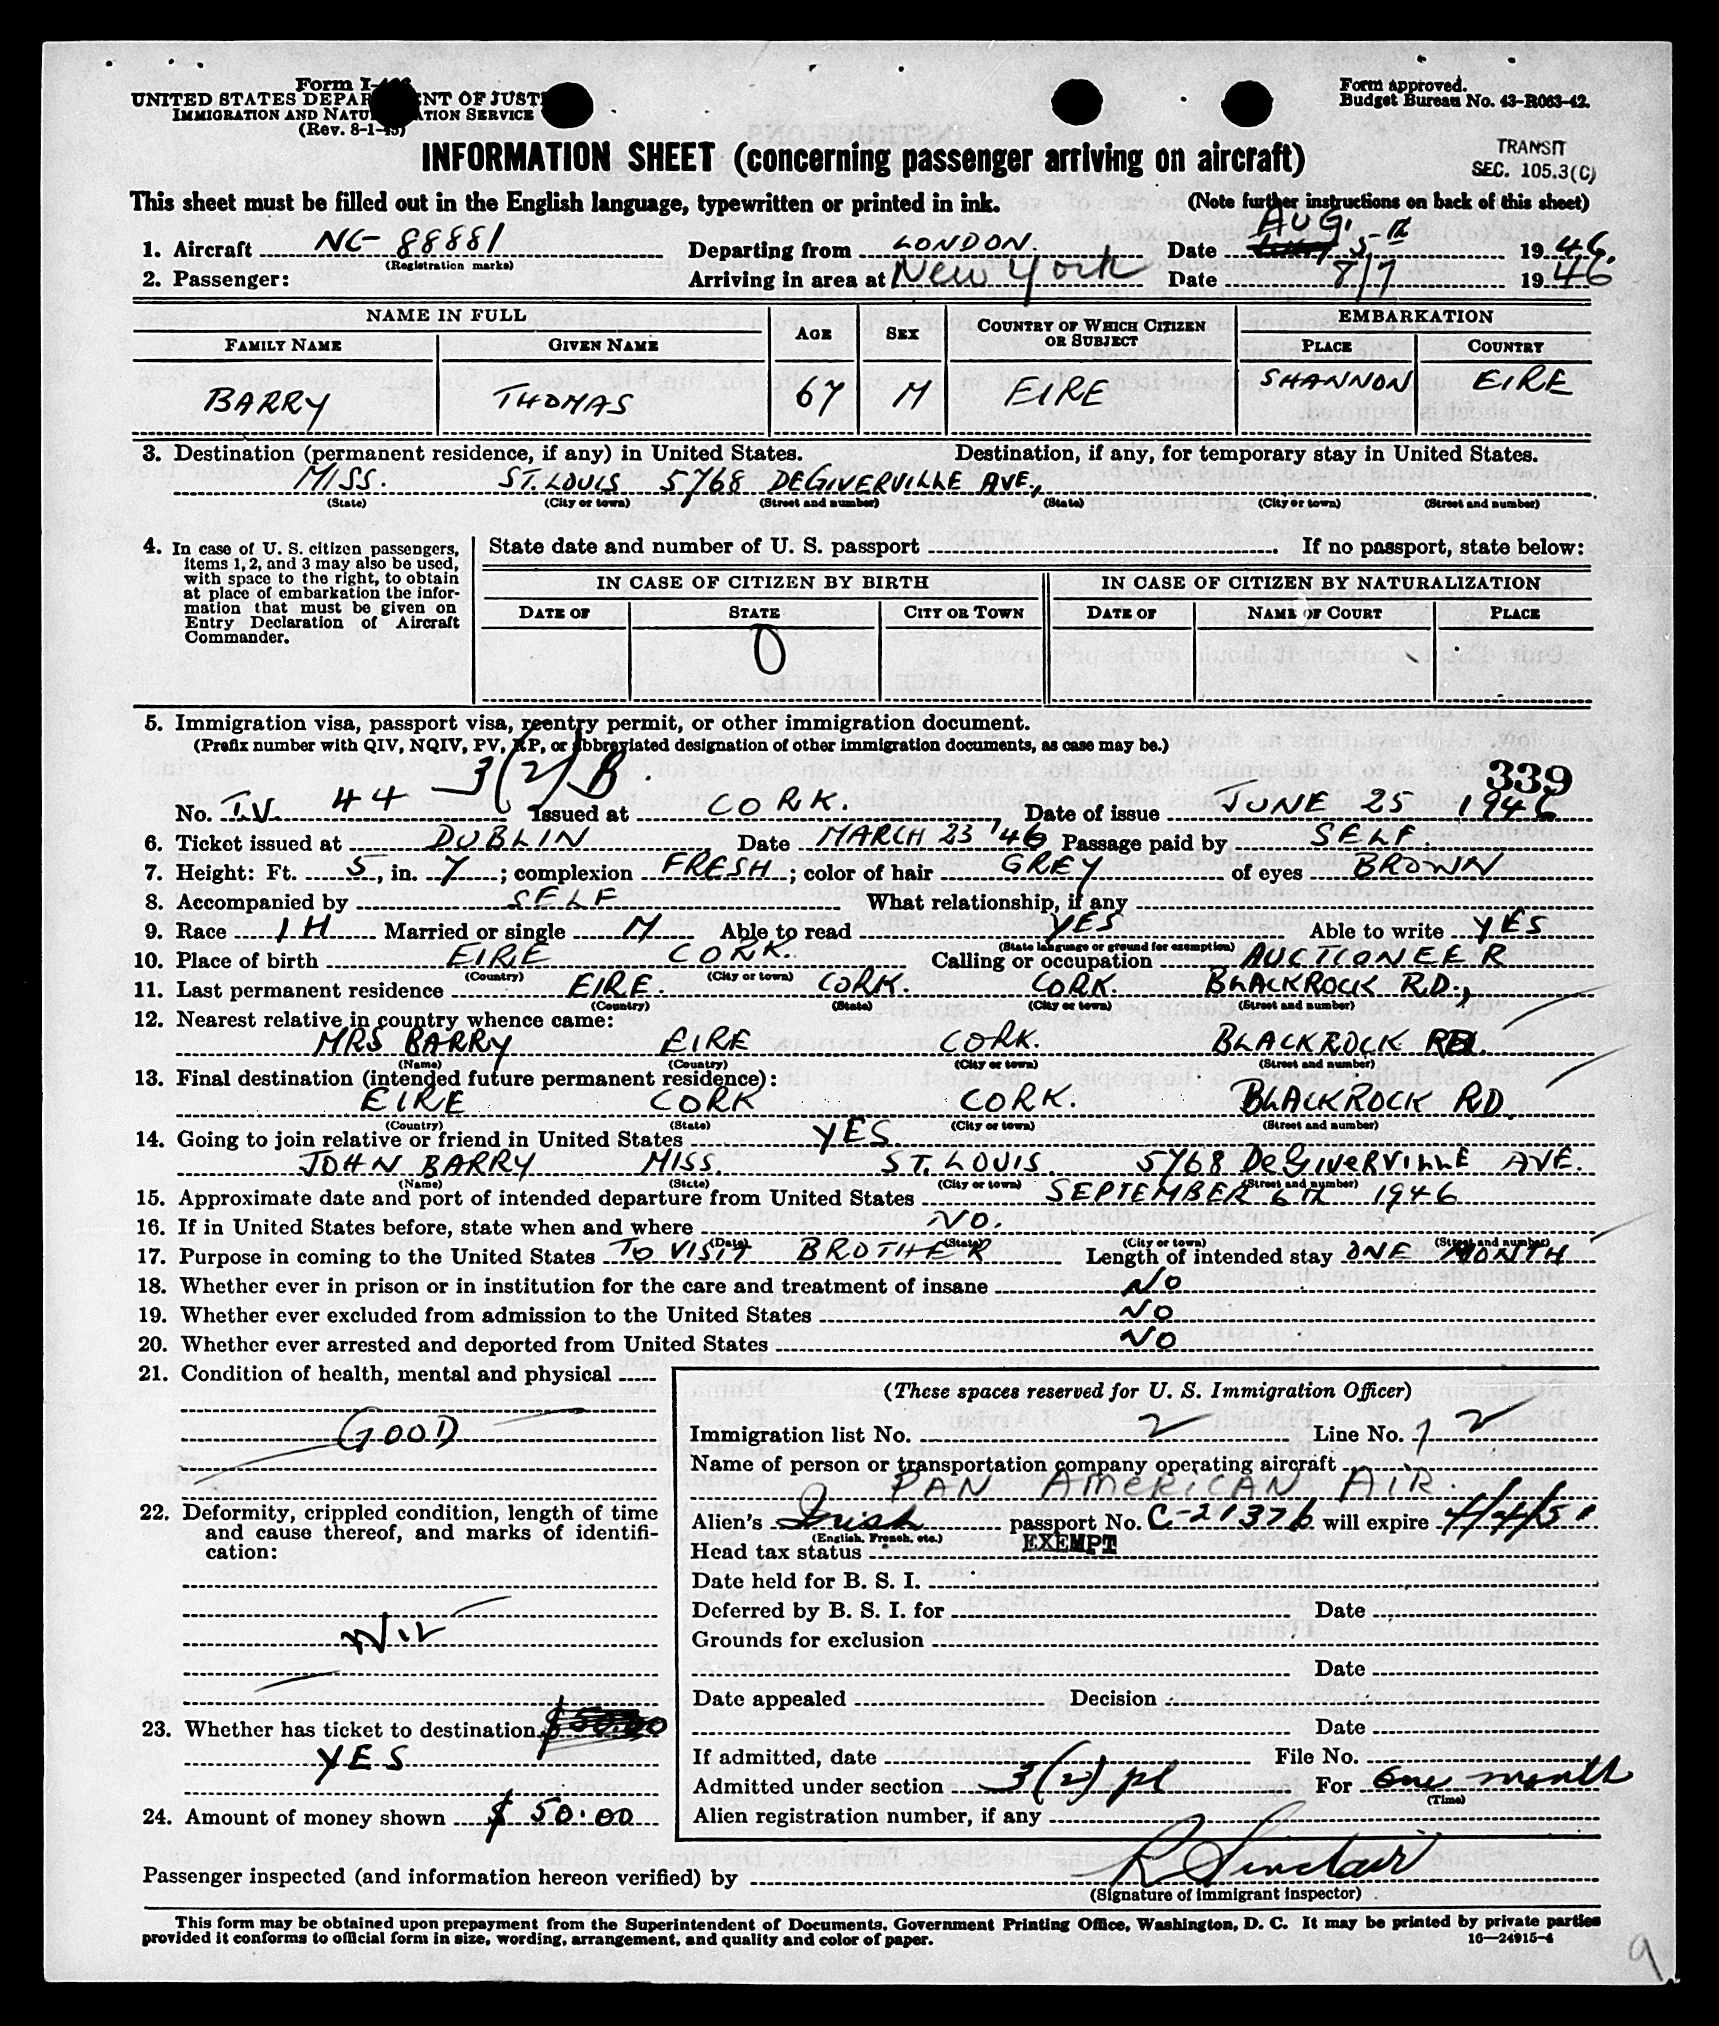 Form I-
UNITED STATES DEPAR NT OF JUST
IMMIGRATION AND NATU TION SERVICE
(Rev. 8-1-45)
Form approved.
Budget Bureau No. 43-R063-42.
TRANSIT
SEC. 105.3(C)
INFORMATION SHEET (concerning passenger arriving on aircraft)
This sheet must be filled out in the English language, typewritten or printed in ink. (Note further instructions on back of this sheet)
1. Aircraft NC- 88881 Departing from LONDON. Date AUG. 5-th 1946.
(Registration marks)
2. Passenger: Arriving in area at New York Date 8/7 1946
NAME IN FULL AGE SEX COUNTRY OF WHICH CITIZEN OR SUBJECT EMBARKATION
FAMILY NAME GIVEN NAME PLACE COUNTRY
BARRY THOMAS 67 M EIRE SHANNON EIRE
3. Destination (permanent residence, if any) in United States. Destination, if any, for temporary stay in United States.
MISS. ST. LOUIS 5768 DEGIVERVILLE AVE.,
(State) (City or town) (Street and number) (State) (City or town) (Street and number)
4. In case of U. S. citizen passengers,
items 1, 2, and 3 may also be used,
with space to the right, to obtain
at place of embarkation the infor-
mation that must be given on
Entry Declaration of Aircraft
Commander.
State date and number of U. S. passport If no passport, state below:
IN CASE OF CITIZEN BY BIRTH IN CASE OF CITIZEN BY NATURALIZATION
DATE OF STATE CITY OR TOWN DATE OF NAME OF COURT PLACE
0
5. Immigration visa, passport visa, reentry permit, or other immigration document.
(Prefix number with QIV, NQIV, PV, RP, or abbreviated designation of other immigration documents, as case may be.)
3(2)B.
339
No. T.V. 44 Issued at CORK. Date of issue JUNE 25 1946
6. Ticket issued at DUBLIN Date MARCH 23 '46 Passage paid by SELF.
7. Height: Ft. 5, in. 7; complexion FRESH; color of hair GREY of eyes BROWN
8. Accompanied by SELF What relationship, if any
9. Race IH Married or single M Able to read YES Able to write YES
(State language or ground for exemption)
10. Place of birth EIRE CORK. Calling or occupation AUCTIONEER
(Country) (City or town)
11. Last permanent residence EIRE. CORK. CORK. BLACKROCK RD.,
(Country) (State) (City or town) (Street and number)
12. Nearest relative in country whence came:
MRS BARRY EIRE CORK. BLACKROCK RD.
(Name) (Country) (City or town) (Street and number)
13. Final destination (intended future permanent residence):
EIRE CORK CORK. BLACKROCK RD.
(Country) (State) (City or town) (Street and number)
14. Going to join relative or friend in United States YES.
JOHN BARRY MISS. ST. LOUIS. 5768 DeGIVERVILLE AVE.
(Name) (State) (City or town) (Street and number)
15. Approximate date and port of intended departure from United States SEPTEMBER 6th 1946
16. If in United States before, state when and where NO.
(Date) (State) (City or town) (Street and number)
17. Purpose in coming to the United States TO VISIT BROTHER Length of intended stay ONE MONTH
18. Whether ever in prison or in institution for the care and treatment of insane NO
19. Whether ever excluded from admission to the United States NO
20. Whether ever arrested and deported from United States NO
21. Condition of health, mental and physical
GOOD
22. Deformity, crippled condition, length of time
and cause thereof, and marks of identifi-
cation:
NIL
23. Whether has ticket to destination
YES
24. Amount of money shown $ 50.00
(These spaces reserved for U. S. Immigration Officer)
Immigration list No. 2 Line No. 12
Name of person or transportation company operating aircraft
PAN AMERICAN AIR.
Alien's Irish passport No. C-21376 will expire 4/4/51
(English, French, etc.)
Head tax status EXEMPT
Date held for B. S. I.
Deferred by B. S. I. for Date
Grounds for exclusion
Date
Date appealed Decision
Date
If admitted, date File No.
Admitted under section 3(2) pl For One month
(Time)
Alien registration number, if any
Passenger inspected (and information hereon verified) by R Sinclair
(Signature of immigrant inspector)
This form may be obtained upon prepayment from the Superintendent of Documents, Government Printing Office, Washington, D. C. It may be printed by private parties
provided it conforms to official form in size, wording, arrangement, and quality and color of paper. 16—24915-4
9